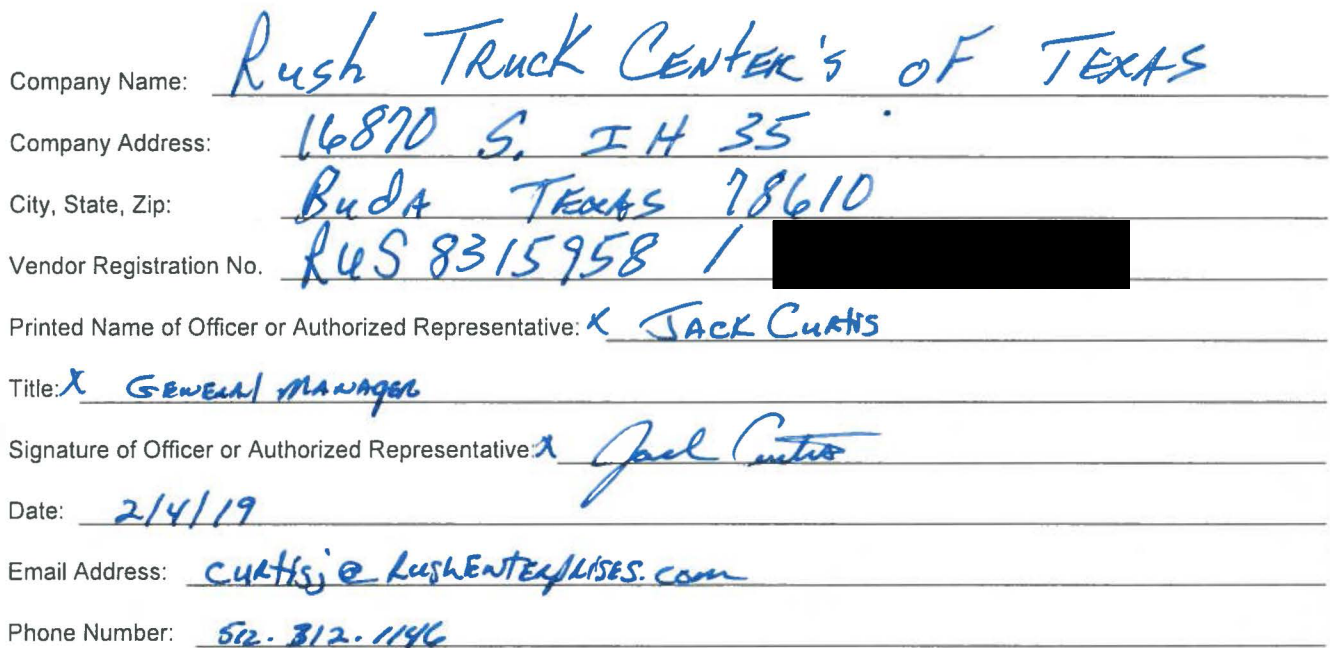 Company Name: Rush Truck Center's of Texas
Company Address: 16870 S. IH 35
City, State, Zip: Buda Texas 78610
Vendor Registration No. RUS 8315958 /
Printed Name of Officer or Authorized Representative: X Jack Curtis
Title: X General Manager
Signature of Officer or Authorized Representative: X Jack Curtis
Date: 2/4/19
Email Address: curtisj@RushEnterprises.com
Phone Number: 512.312.1146